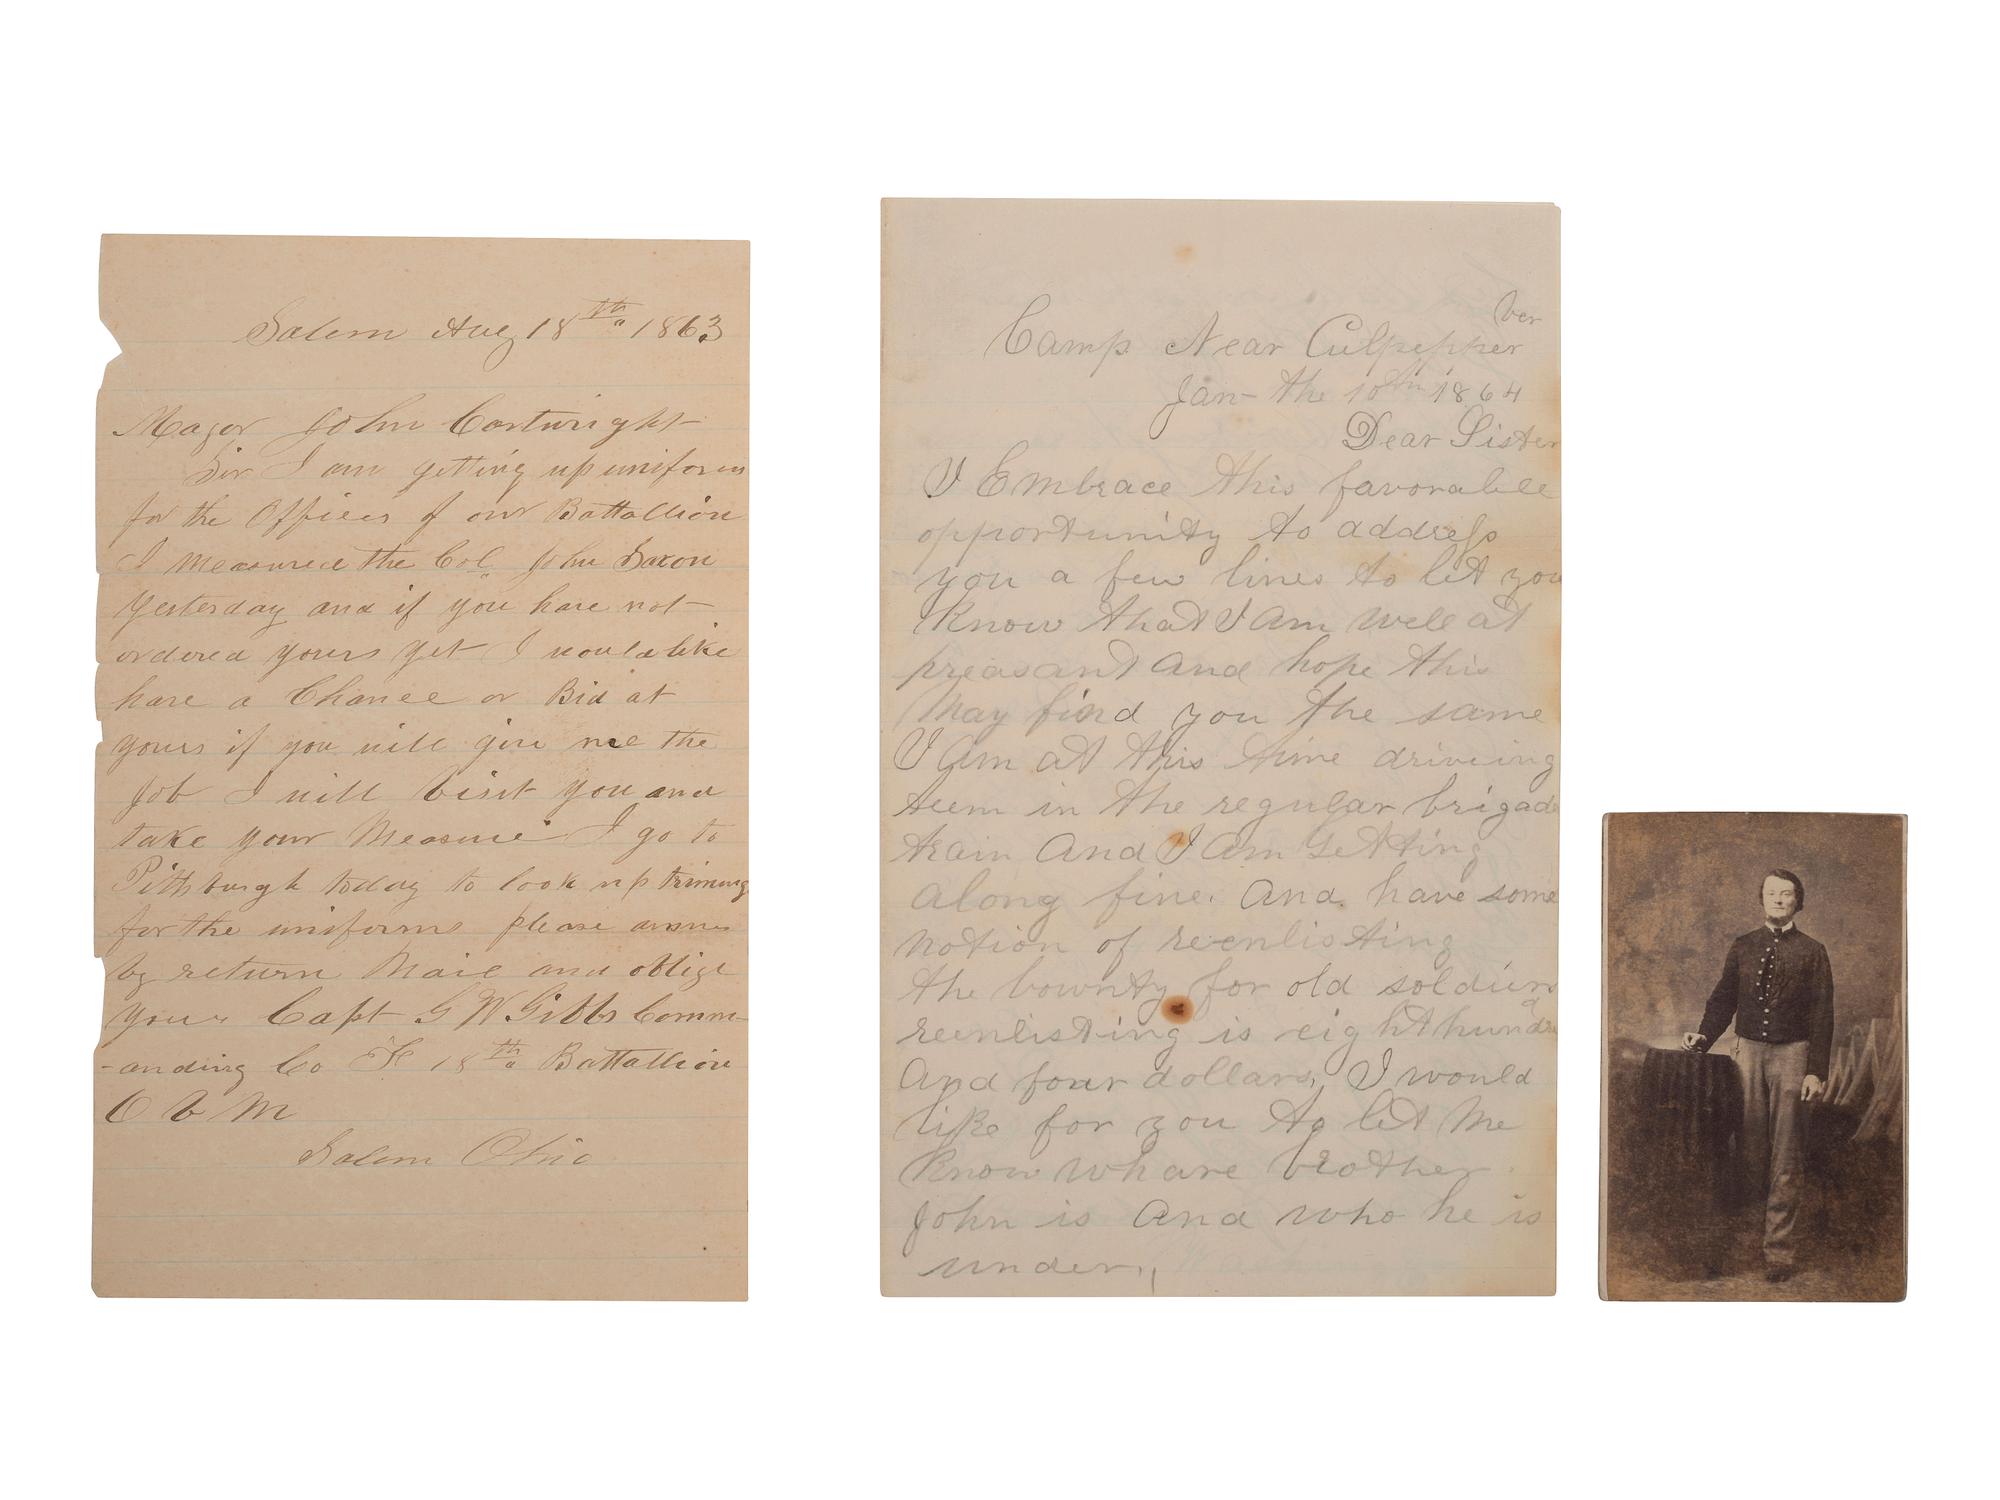 Salem Aug 18th 1863
Major John Cartwright
Sir I am getting up uniforms
for the Officers of our Battallion
I measured the Col. John Saxon
yesterday and if you have not
ordered yours yet I would like
have a Chance or Bid at
yours if you will give me the
Job I will visit you and
take your Measure I go to
Pittsburgh today to look up triming
for the uniforms please answer
by return Mail and oblige
your Capt G W Gibbs Comm-
-anding Co F 18th Battallion
O V M
Salem Ohio
Camp Near Culpepper
Ver
Jan- the 10th 1864
Dear Sister
I Embrace this favorable
opportunity to address
you a few lines to let you
know that I am well at
preasant and hope this
May find you the same
I am at this time driveing
teem in the regular brigade
train and I am getting
along fine. and have some
notion of reenlisting
the bounty for old soldiers
reenlisting is eight hundred
and four dollars, I would
like for you to let me
know whare brother
John is and who he is
under,